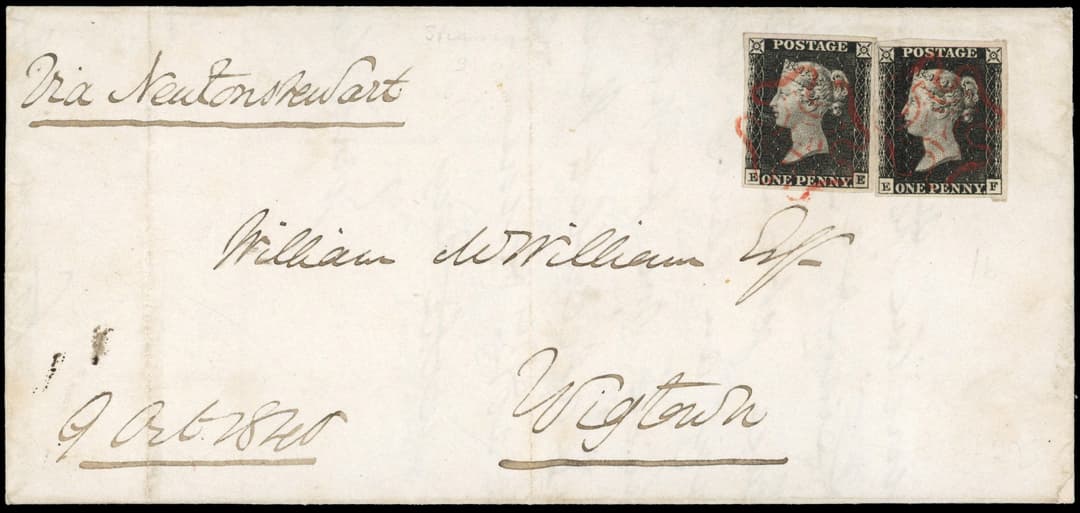 Via Newtonstewart
POSTAGE
E ONE PENNY E
POSTAGE
E ONE PENNY F
William McWilliam Esq
Wigtown
9 Oct. 1840